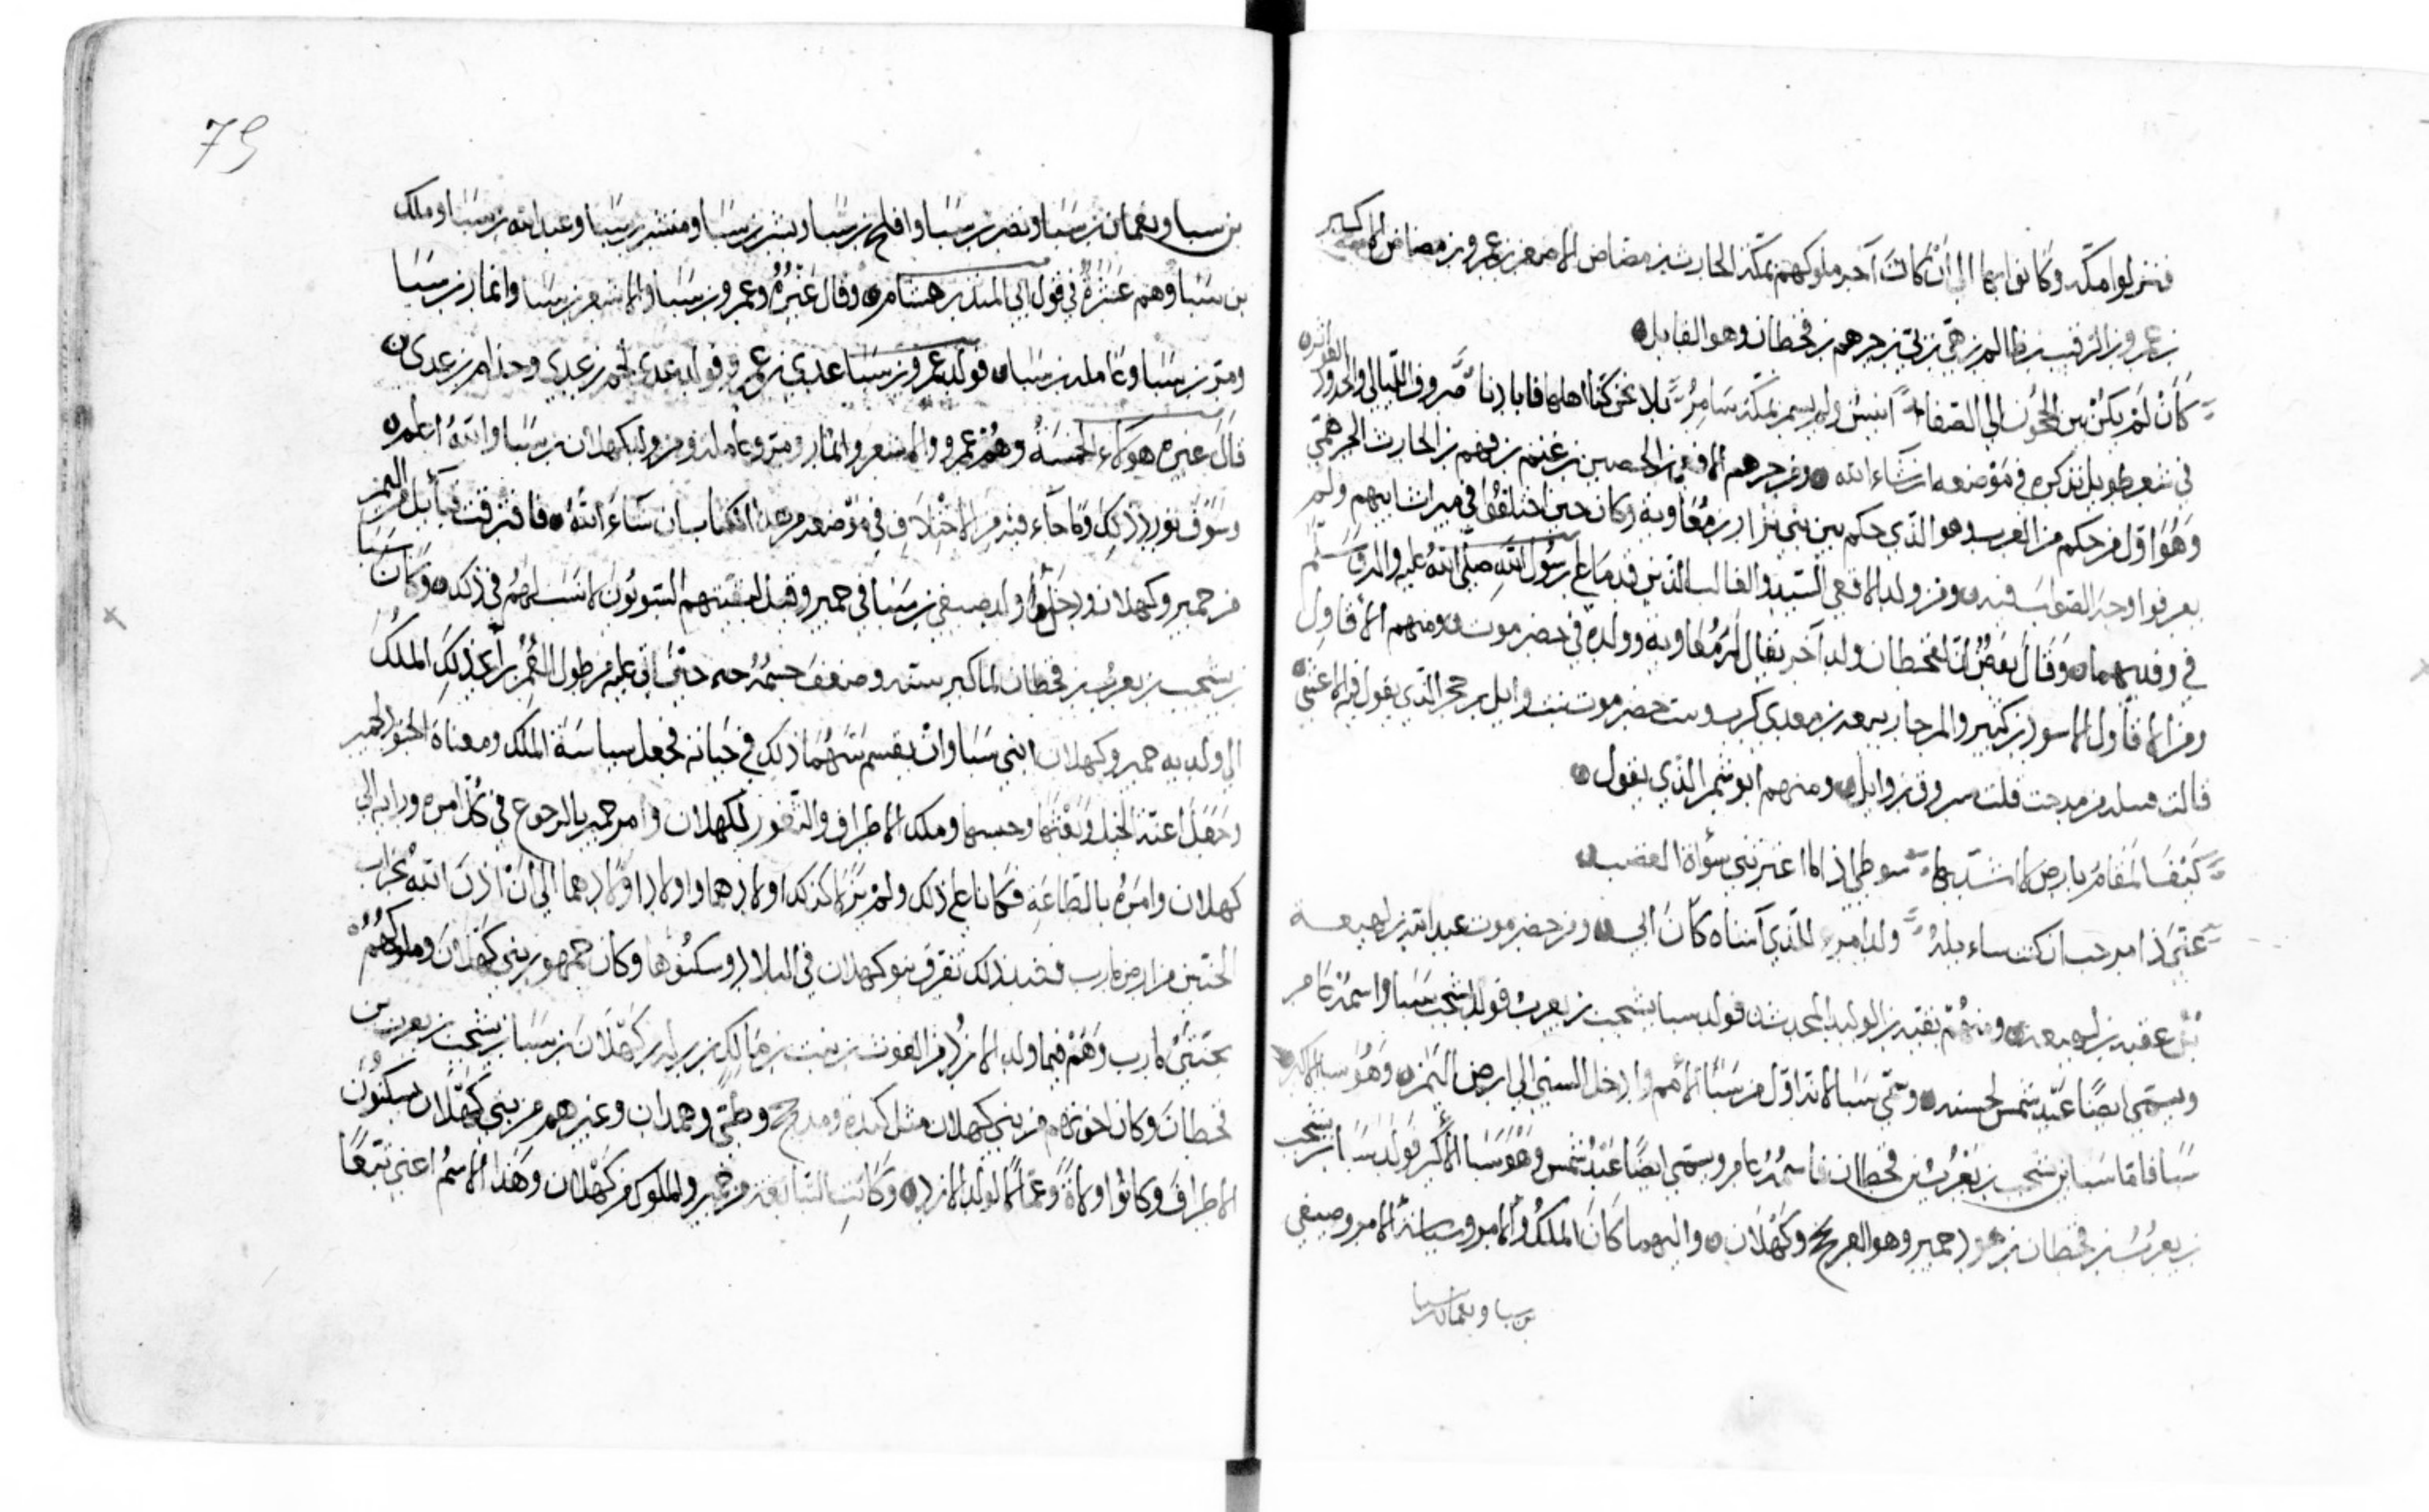 فنزلوا مكة وكانوا بها الى ان كان آخر ملوكهم بمكة الحارث بن مضاض الاصغر بن عمرو بن مضاض الاكبر
بن عمرو بن الرقيب بن ظالم بن هي بن بي بن جرهم بن قحطان وهو القايل
كَأَنْ لَمْ يَكُنْ بين الحجُون الي الصفا انيسٌ ولم يسمر بمكة سَامِرُ بلا نحن كنا اهلها فابادنا صروف الليالي والجدود العواثر
في شعر طويل نذكره في موضعه ان شاء الله ومن جرهم الافعى بن الحصين بن غنم بن رهم بن الحارث الجرهمي
وَهُوَ اول من حكم من العرب وهو الذي حكم بين بني نزار بن مُعَاوية وكان حين اختلفوا في ميراث ابيهم ولم
يعرفوا وجه الصواب فيه ومن ولد الافعي السيد والعاقب الذين قدما علي رسُول الله صلى الله عليه واله وسلم
في وفدهما وَقَالَ بَعْضٌ ان لقحطان ولد آخر يقال له مُعاوية وولده في حضرموت ومنهم الاقاول
ومن الاقاول الاسود بن كثير والمرجا ربيعة بن معدي كرب وبنت حضرموت بنت وايل بن حجر الذي يقول فيه الاعشى
قالت من مدحت فقلت مسروق بن وايل ومنهم ابو شمر الذي يقول
كَيْفَ المقَامُ بارض لا اشد بها سوطي اذا ما اعترتني سؤرة الغضب
ولد امرء للذي آسناه كان ابي ومن حضرموت عبد الله بن لهيعة
بن عقبة بن لهيعة ومنهُم بقية بن الوليد المحدث فولد سبا يشجب بن يعرب فولد يشجب سَبَا واسمه عامر
ويسمى ايضًا عَبْد شمس لحسنه وسمّي سَبَا لانه اول من سَبَا الامم وادخل السبي الي ارض اليَمَن وَهُوَ سبا الاكبر
سَبَا فاما سَبَا بن يشجب بن يَعْرُبْ بن قحطان فاسمُهُ عامر ويسمى ايضًا عَبْدُ شمس وَهُوَ سَبَا الأكبر فولد سَبَا بن يشجب
بن يعرُب بن قحطان بن هود حمير وهو العرنجج وكَهْلَان واليهما كان الملكُ والامر وسياسة الامر وصيفي
بن سبا ونعمان بن سبا
79
بن سبا ونعمان بن سَبَا ونصر بن سَبَا وافلح بن سَبَا وبشر بن سَبَا ومنشر بن سَبَا وعبد الله بن سَبَا وملك
بن سَبَا وهم عَشَرَةٌ في قول ابي المنذر هشام وقال غَيْرُهُ وعمرو بن سَبَا والاشعر بن سَبَا وانمار بن سَبَا
ومر بن سَبَا وعاملة بن سَبَا فولد عَمرو بن سَبَا عدي بن عمرو فولد عدي لخم بن عدي وجذام بن عدي
قال غيره هولاء الخمسَةُ وَهُمْ عمرو والاشعر وانمار ومر وعاملة ومن ولد كهلان بن سَبَا والله اعلم
وسَوْفَ نورد ذلِكَ وما جَاء فيه من الاختلاف في موضعه من هذا الكتاب ان شاءَ اللهُ فافترقت قبآئل اليمن
من حمير وكهلان ودخلوا ولد صيفي بن سَبَا في حمير وقيل لبقيتهم السبويُون لا نسَب لهُم في ذلك وَكَانَ سَبَا
بن يشجب بن يعرُب بن قحطان لما كبر سنه وضعف جسْمُهُ حتى اتى عليه من طول العُمُر رأى ذلِكَ الملك
الى ولديه حمير وكهلان ابني سَبَا وان يقسم بَيْنهُمَا ذلِك في حَيَاته فجعل سياسَة الملك ومعناهُ الجنود لحمير
وجَعَلَ اعنة الخيل وملك الاطراف والثغور لكهلان وامر حمير بالرجوع في كل امره ورايه الى
كهلان وامَرهُ بالطاعَةِ فكانا علي ذلك ولم يزالا كذلك اولادهما واولاد اولادهما الي ان اذن اللهُ بخراب
الجنتين من ارض مارب فعند ذلك تفرق بنو كهلان في البلاد وسكنُوهَا وكان جمهور بني كَهْلانَ وملوكهُمُ
بجنتي مارب وهُمْ فيما ولد الازد من الغوث بن نبت بن مَالك بن زيد بن كَهْلَانَ بن سَبَا بن يشجب بن يعرب بن
قحطانَ وكان اخوتهم من بني كهلان مثل كندة ومذحج وطيّ وهمدان وغيرهم من بني كَهْلان يسكنُون
الاطرافَ وكانوُا ولاةً وعمالًا لولد الازد وكَانتِ التبابعة من حمير والملوك من كَهْلان وهَذَا الاسمُ اعني تبّعًا